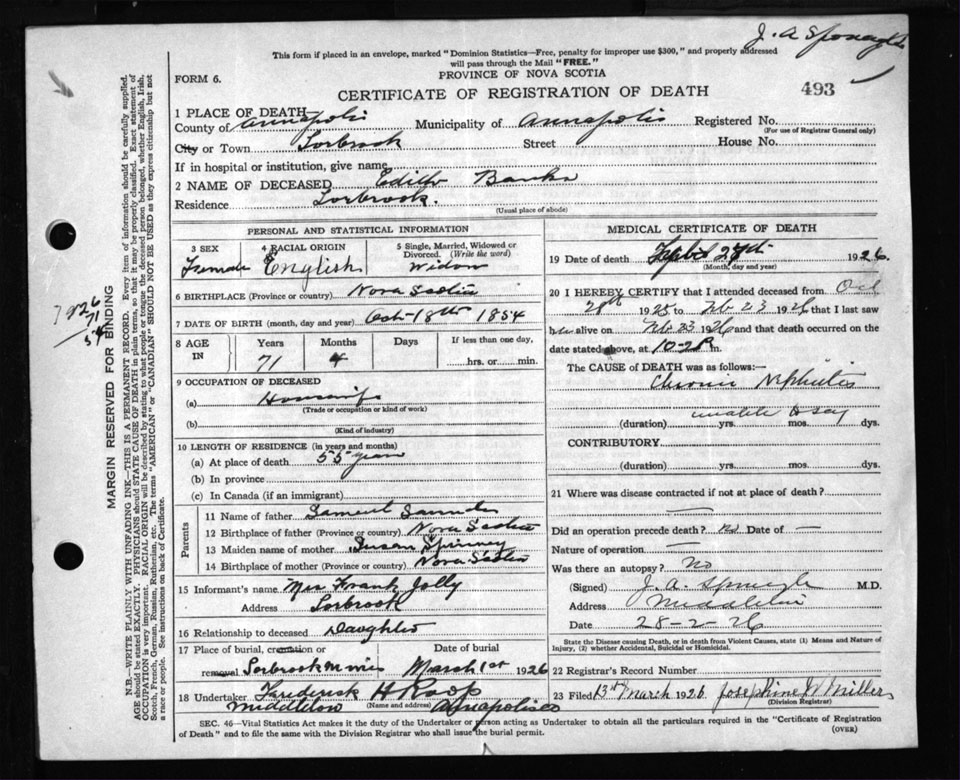 J. A. Sponagle
This form if placed in an envelope, marked "Dominion Statistics—Free, penalty for improper use $300," and properly addressed
will pass through the Mail "FREE."
FORM 6.
PROVINCE OF NOVA SCOTIA
493
CERTIFICATE OF REGISTRATION OF DEATH
1 PLACE OF DEATH
County of Annapolis Municipality of Annapolis Registered No.
(For use of Registrar General only)
City or Town Torbrook Street House No.
If in hospital or institution, give name
2 NAME OF DECEASED Edith Banks
Residence Torbrook.
(Usual place of abode)
PERSONAL AND STATISTICAL INFORMATION
3 SEX 4 RACIAL ORIGIN 5 Single, Married, Widowed or
Divorced. (Write the word)
Female English Widow
6 BIRTHPLACE (Province or country) Nova Scotia
7 DATE OF BIRTH (month, day and year) Oct-18th 1854
8 AGE IN Years Months Days If less than one day,
71 4 hrs. or min.
9 OCCUPATION OF DECEASED
(a) Housewife
(Trade or occupation or kind of work)
(b)
(Kind of industry)
10 LENGTH OF RESIDENCE (in years and months)
(a) At place of death 55 years
(b) In province
(c) In Canada (if an immigrant)
Parents
11 Name of father Samuel Saunders
12 Birthplace of father (Province or country) Nova Scotia
13 Maiden name of mother Susan Spinney
14 Birthplace of mother (Province or country) Nova Scotia
15 Informant's name Mrs Frank Jolly
Address Torbrook
16 Relationship to deceased Daughter
17 Place of burial, cremation or Date of burial
removal Torbrook Mines March 1st 1926
18 Undertaker Frederick H Roop
Middleton (Name and address) Annapolis
MEDICAL CERTIFICATE OF DEATH
19 Date of death 1926.
(Month, day and year)
20 I HEREBY CERTIFY that I attended deceased from Oct
28th 1925 to Feb 23 1926 that I last saw
her alive on Feb 23 1926 and that death occurred on
date stated above, at 10-2 P m.
The CAUSE of DEATH was as follows:—
Chronic Nephritis
unable to say
(duration) yrs. mos. dys.
CONTRIBUTORY
(duration) yrs. mos. dys.
21 Where was disease contracted if not at place of death?
—
Did an operation precede death? no Date of —
Nature of operation —
Was there an autopsy? no
(Signed) J. A. Sponagle M.D.
Address Middleton
Date 28-2-26
State the Disease causing Death, or in death from Violent Causes, state (1) Means and Nature of
Injury, (2) whether Accidental, Suicidal or Homicidal.
22 Registrar's Record Number
23 Filed 13th March 1926 Josephine W Miller
(Division Registrar)
SEC. 46—Vital Statistics Act makes it the duty of the Undertaker or person acting as Undertaker to obtain all the particulars required in the "Certificate of Registration
of Death" and to file the same with the Division Registrar who shall issue the burial permit.
(OVER)
MARGIN RESERVED FOR BINDING
N.B.—WRITE PLAINLY WITH UNFADING INK—THIS IS A PERMANENT RECORD. Every item of information should be carefully supplied.
AGE should be stated EXACTLY. PHYSICIANS should STATE CAUSE OF DEATH in plain terms, so that it may be properly classified. Exact statement of
OCCUPATION is very important. RACIAL ORIGIN will be described by stating to what people or tongue the deceased person belonged, whether English, Irish,
Scotch, French, German, Russian, Ruthenian, etc. The terms "AMERICAN" or "CANADIAN" SHOULD NOT BE USED as they express citizenship but not
a race or people. See instructions on back of Certificate.